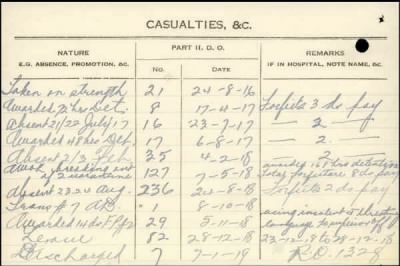 CASUALTIES, &C.
NATURE PART II. D. O. REMARKS
E.G. ABSENCE, PROMOTION, &C. No. DATE IF IN HOSPITAL, NOTE NAME, &C.
Taken on strength 21 24-8-16
Awarded 72 hrs Det. 8 17-4-17 Forfeits 3 ds pay
Absent 21/22 July/17 16 23-7-17 — 2 —
Awarded 48 hrs Det. 17 6-8-17 — 2 —
Absent 2/3 Feb. 35 4-2-18 — 2
Awd. breaking out of quarantine 127 7-5-18 168 hrs detention Total forfeiture 8 ds pay
Absent 23 24 Aug. 236 8-18 Forfeits 2 ds pay
Trans # 7 1 8-10-18
Awarded 14 ds F.P. #2 29 5-11-18 using insolent & threatening language to
Leave 82 28-12-18 23-12-18 to 28-12-18
Discharged 7 7-1-19 R.O. 1328